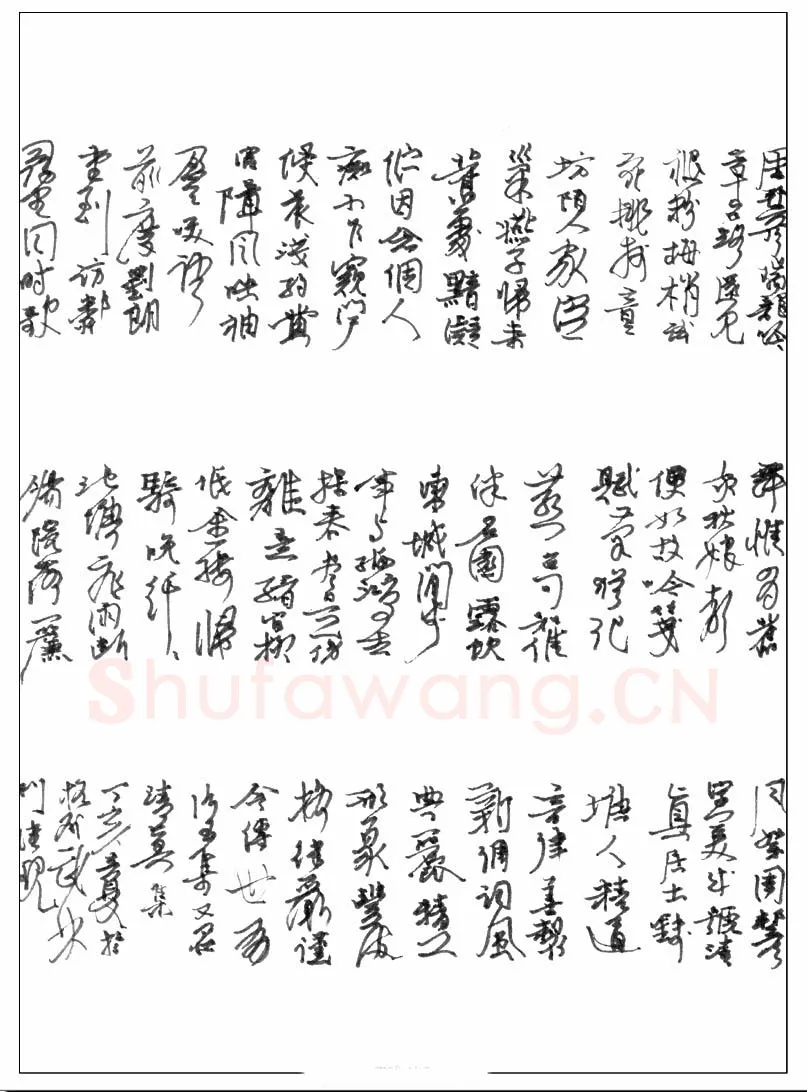 周邦彥瑞龍吟
章台路還見
褪粉梅梢試
花桃樹愔
坊陌人家定
巢燕子歸來
舊處黯凝
佇因念個人
痴小乍窺門戶
侵晨淺約黃
宮障風映袖
盈盈笑語
前度劉郎
重到訪鄰
尋里同時歌
舞惟有舊
家秋娘聲
價如故吟箋
賦筆猶記
燕台句誰
伴名園露飲
東城閒步
事与孤鴻去
探春盡是傷
離意緒官柳
低金縷歸
騎晚纖纖
池塘飛雨斷
腸院落一簾
風絮周邦彥
美成號清
真居士錢
塘人精通
音律善製
新調詞風
典麗精工
形象豐
格律嚴謹
今傳世有
片玉集又名
清真集
丁亥夏於
Shufawang.CN